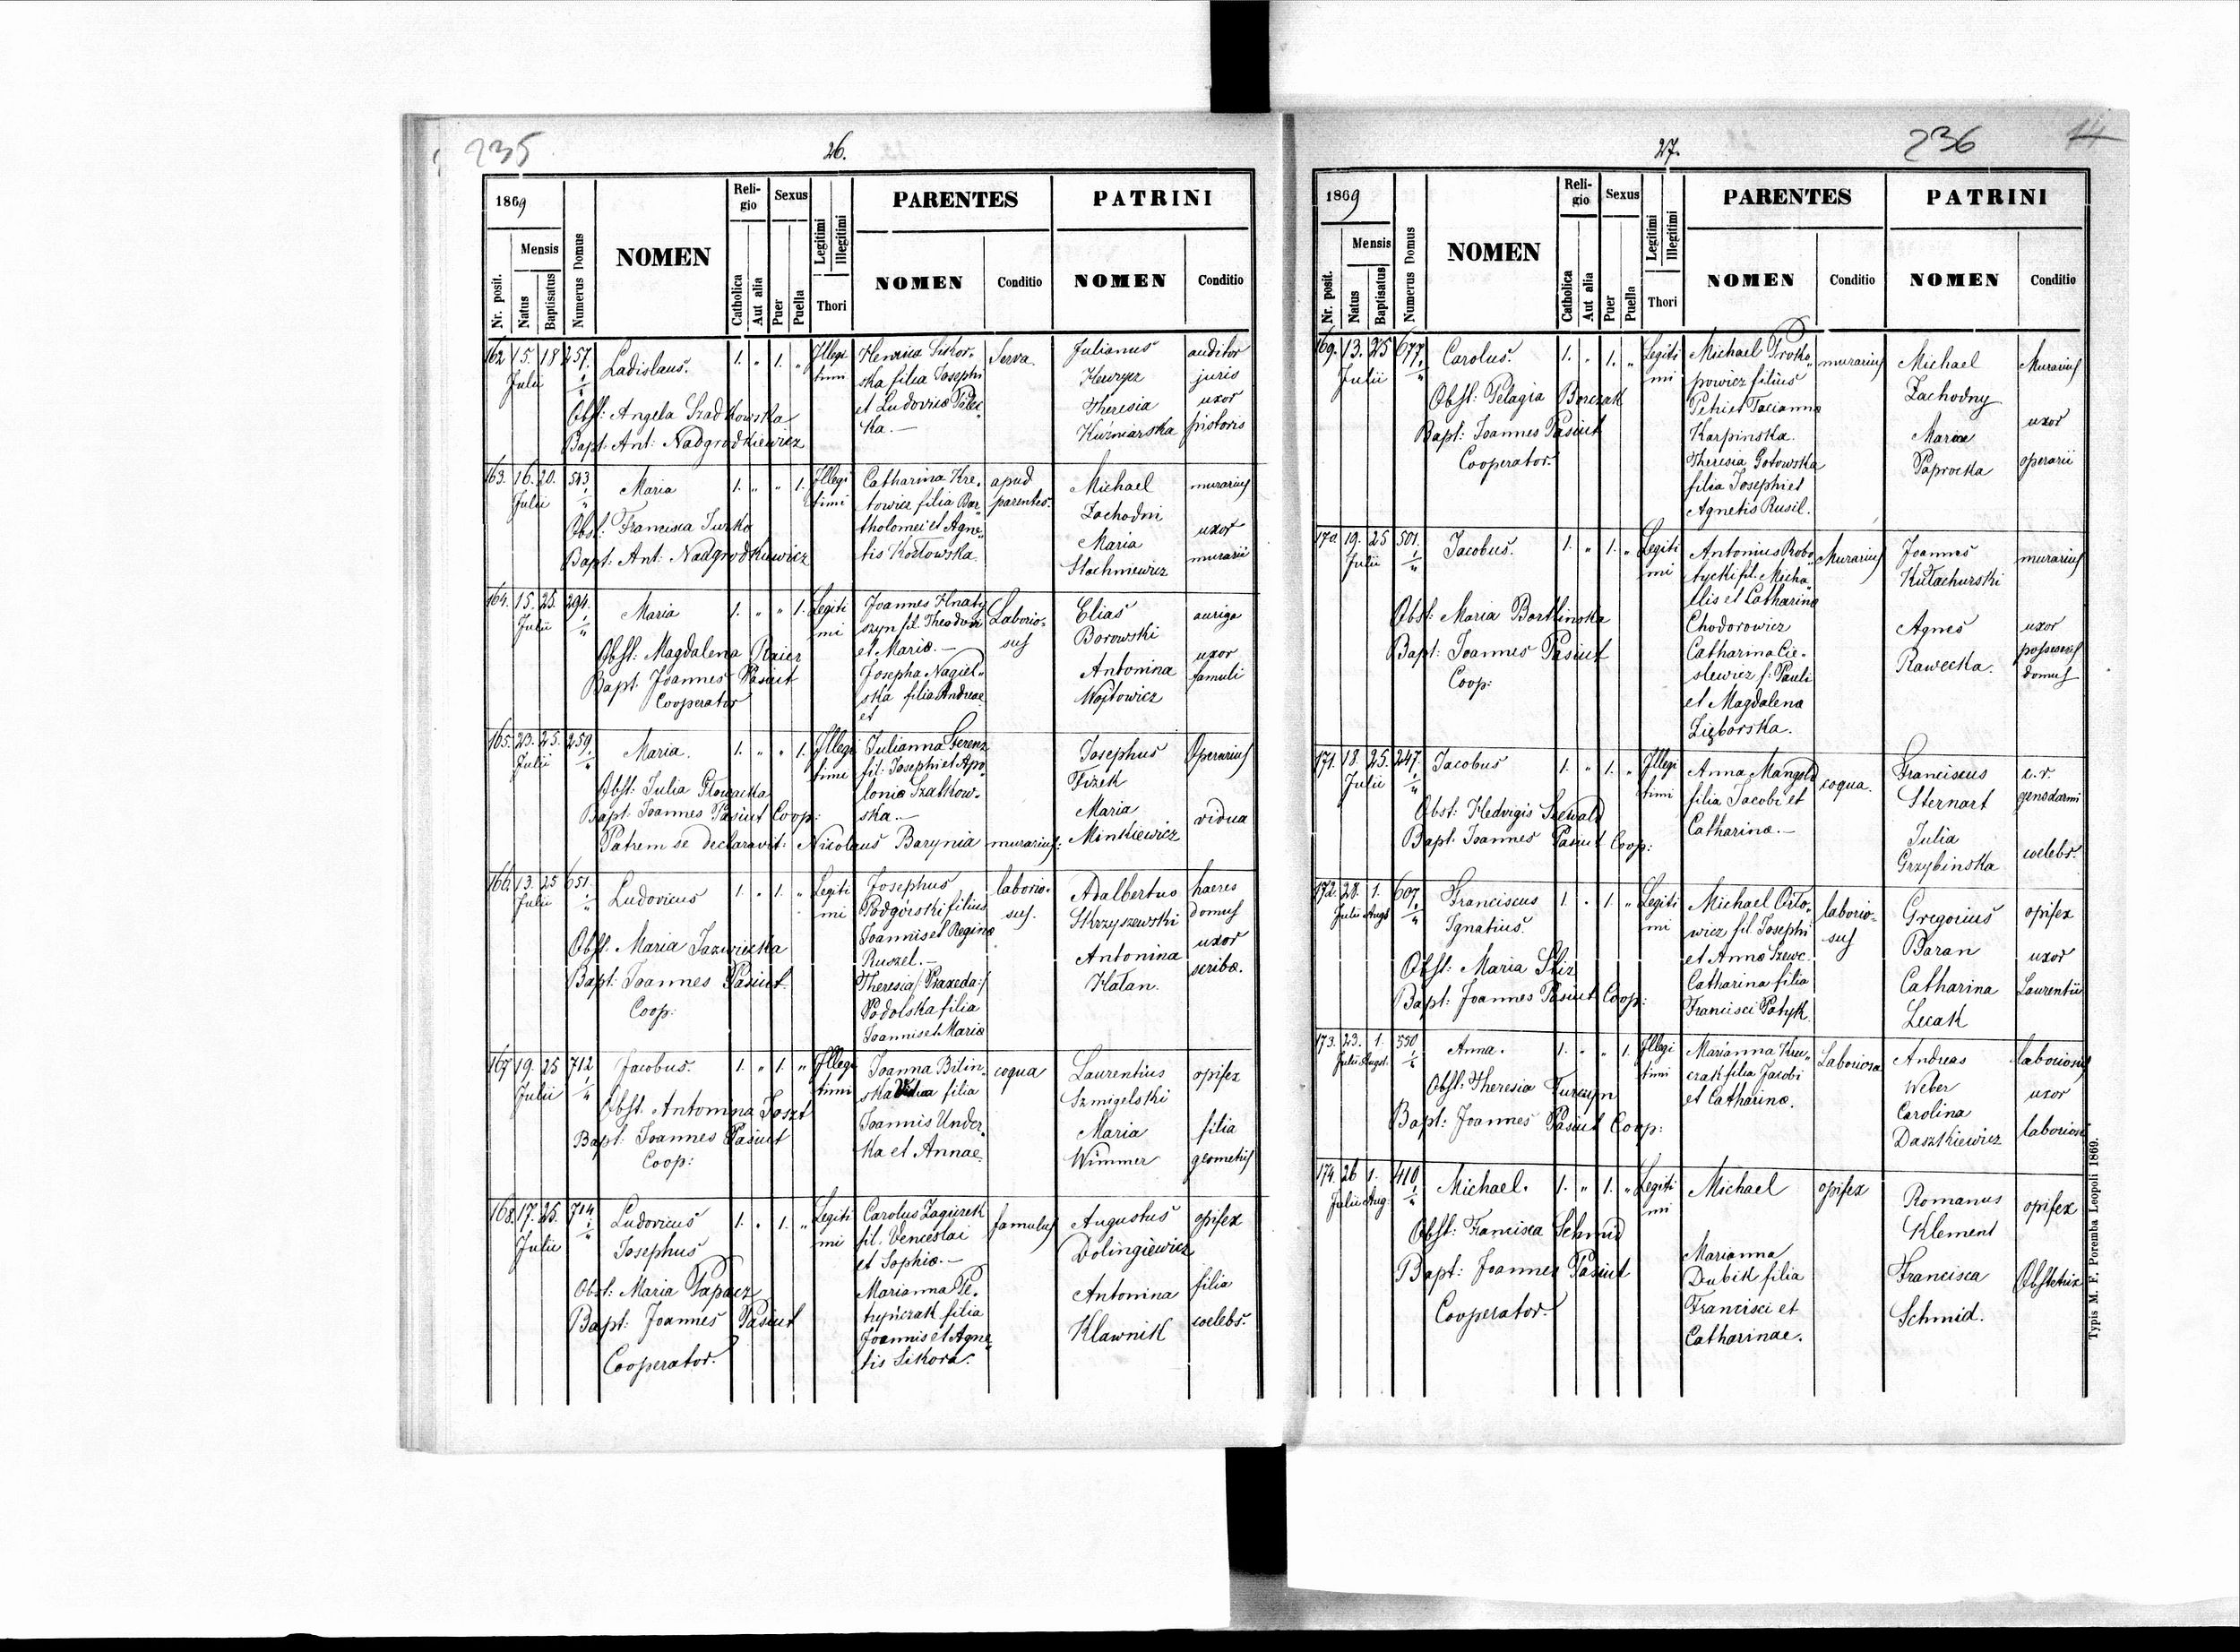 235
26.
1869
Nr. posit.
Mensis
Natus
Baptisatus
Numerus Domus
NOMEN
Religio
Catholica
Aut alia
Sexus
Puer
Puella
Legitimi
Illegitimi
Thori
PARENTES
NOMEN
Conditio
PATRINI
NOMEN
Conditio
162. 15. 18 257. Ladislaus. 1. " 1. "
Julii
Obst: Angela Szadkowska
Bapt. Ant: Nadgrodkiewicz
Illegi
timi
Henrica Sikor-
ska filia Josephi
et Ludovica
ka.—
Serva
Julianus
Theresia
Kuźniarska
auditor
juris
uxor
pistoris
163. 16. 20. 513 Maria 1. " " 1.
Julii
Obst. Francisca Turko
Bapt. Ant. Nadgrodkiewicz
Illegi
timi
Catharina Kre-
towicz filia Bar-
tholomei et Agne-
tis Kozłowska
apud
parentes.
Michael
Zachodni
Maria
Stachniewicz
murarius
uxor
murarii
164. 15. 25. 294. Maria 1. " " 1.
Julii
Obst. Magdalena Raier
Bapt. Joannes Pasiut
Cooperator
Legiti
mi
Joannes Hnaty
szyn fil. Theodori
et Maria.—
Josepha Nagiel-
ska filia Andreae
et
Laborio-
sus
Elias
Borowski
Antonina
Wojtowicz
auriga
uxor
famuli
165. 23. 25. 259. Maria. 1. " " 1.
Julii
Obst: Julia Głowacka
Bapt. Joannes Pasiut Coop:
Patrem se declaravit: Nicolaus Barynia murarius:
Illegi
timi
Julianna Sterenz
fil. Josephi et Apo
lonia Szatkow-
ska.—
Josephus
Fizek
Maria
Minkiewicz
Operarius
vidua
166. 13. 25 651. Ludovicus 1. " 1. "
Julii
Obst. Maria Jazwiecka
Bapt: Joannes Pasiut
Coop:
Legiti
mi
Josephus
Podgórski filius
Joannis et Regina
Ruszel.—
Theresia /: Praxeda:/
Podolska filia
Joannis et Maria
laborio-
sus.
Adalbertus
Skrzyszewski
Antonina
Hałan.
haeres
domus
uxor
scribae.
167 19. 25 712 Jacobus. 1. " 1. "
Julii
Obst. Antonina Joszt
Bapt. Joannes Pasiut
Coop:
Illegi
timi
Joanna Bilin-
ska filia
Joannis Under-
ka et Annae.
coqua
Laurentius
Szmigelski
Maria
Wimmer
opifex
filia
geometris
168. 17. 25. 714 Ludovicus 1. " 1. "
Julii
Josephus
Obst: Maria Papacz
Bapt: Joannes Pasiut
Cooperator.
Legiti
mi
Carolus Zagurek
fil. Venceslai
et Sophia.—
Marianna Pe-
tryńczak filia
Joannis et Agne-
tis Sikora.
famulus
Augustus
Dolingiewicz
Antonina
Klawnik
opifex
filia
coelebs.
27.
236
14
1869
Nr. posit.
Mensis
Natus
Baptisatus
Numerus Domus
NOMEN
Religio
Catholica
Aut alia
Sexus
Puer
Puella
Legitimi
Illegitimi
Thori
PARENTES
NOMEN
Conditio
PATRINI
NOMEN
Conditio
169. 13. 25 677. Carolus. 1. " 1. "
Julii
Obst: Pelagia Borczak
Bapt: Joannes Pasiut
Cooperator.
Legiti
mi
Michael Proko-
powicz filius
Petri et Tacianna
Karpinska.
Theresia Gotowska
filia Josephi et
Agnetis Rusil.
murarius
Michael
Zachodny
Maria
Paprocka
Murarius
uxor
operarii
170. 19. 25 501. Jacobus. 1. " 1. "
Julii
Obst: Maria Bortlinska
Bapt: Joannes Pasiut
Coop:
Legiti
mi
Antonius Robo
tycki fil. Micha
elis et Catharina
Chodorowicz
Catharina Cie-
slewicz f: Pauli
et Magdalena
Zięborska.
Murarius
Joannes
Kułachurski
Agnes
Rawecka.
murarius
uxor
possessoris
domus
171. 18. 25. 247. Jacobus 1. " 1. "
Julii
Obst: Hedvigis Seewald
Bapt. Joannes Pasiut Coop:
Illegi
timi
Anna Mangold
filia Jacobi et
Catharina.—
coqua.
Franciscus
Sternart
Julia
Grzybinska
c. r.
gensdarmi
coelebs.
172. 28. 1. 607. Franciscus 1. " 1. "
Julii Augs
Ignatius.
Obst: Maria Sliz
Bapt. Joannes Pasiut Coop:
Legiti
mi
Michael Orto-
wicz fil. Josephi
et Anna Szewc.
Catharina filia
Francisci Patyk.
laborio-
sus
Gregorius
Baran
Catharina
Lecak
opifex
uxor
Laurentii
173. 23. 1. 550 Anna. 1. " " 1.
Julii Augst.
Obst. Theresia Turczyn
Bapt: Joannes Pasiut Coop:
Illegi
timi
Marianna Kru-
czak filia Jacobi
et Catharina.
Laboriosa
Andreas
Weber
Carolina
Daszkiewicz
laboriosus
uxor
laboriosi
174. 26 1. 410. Michael. 1. " 1. "
Julii Aug.
Obst: Francisca Schmid
Bapt: Joannes Pasiut
Cooperator.
Legiti
mi
Michael
Marianna
Dubik filia
Francisci et
Catharinae.
opifex
Romanus
Klement
Francisca
Schmid.
opifex
Obstetrix
Typis M. F. Poremba Leopoli 1869.